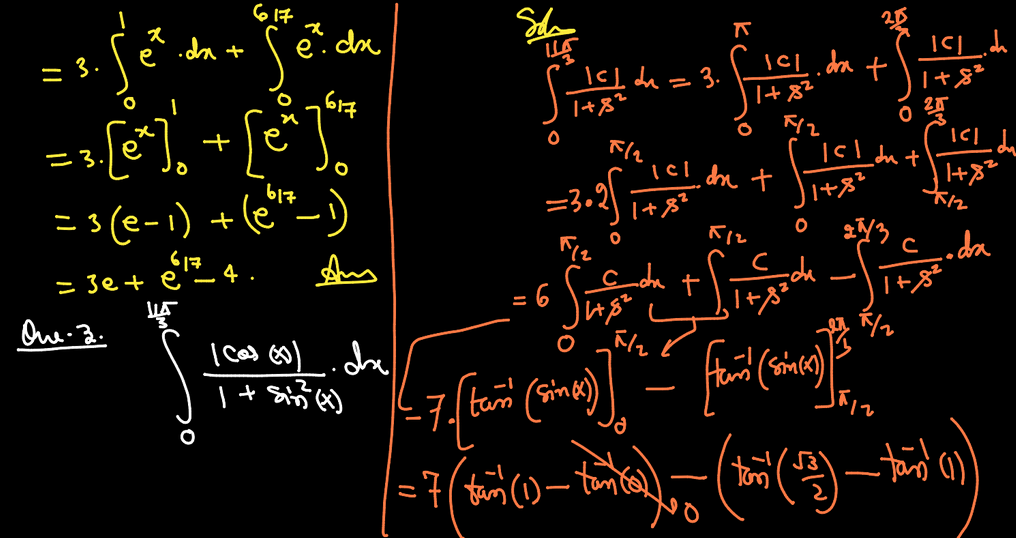 = 3. ∫₀¹ eˣ . dx + ∫₀^{617} eˣ . dx
= 3. [eˣ]₀¹ + [eˣ]₀^{617}
= 3(e-1) + (e^{617} - 1)
= 3e + e^{617} - 4. Ans
Que.3. ∫₀^{11π/3} |cos(x)| / (1 + sin²(x)) . dx
Soln
∫₀^{11π/3} |c|/(1+s²) dx = 3. ∫₀^{π} |c|/(1+s²) . dx + ∫₀^{2π/3} |c|/(1+s²) . dx
= 3.2 ∫₀^{π/2} |c|/(1+s²) . dx + ∫₀^{π/2} |c|/(1+s²) dx + ∫_{π/2}^{2π/3} |c|/(1+s²) dx
= 6 ∫₀^{π/2} c/(1+s²) dx + ∫₀^{π/2} c/(1+s²) dx - ∫_{π/2}^{2π/3} c/(1+s²) . dx
= 7. [tan⁻¹(sin(x))]₀^{π/2} - [tan⁻¹(sin(x))]_{π/2}^{2π/3}
= 7 (tan⁻¹(1) - tan⁻¹(0)) → 0 - (tan⁻¹(√3/2) - tan⁻¹(1))